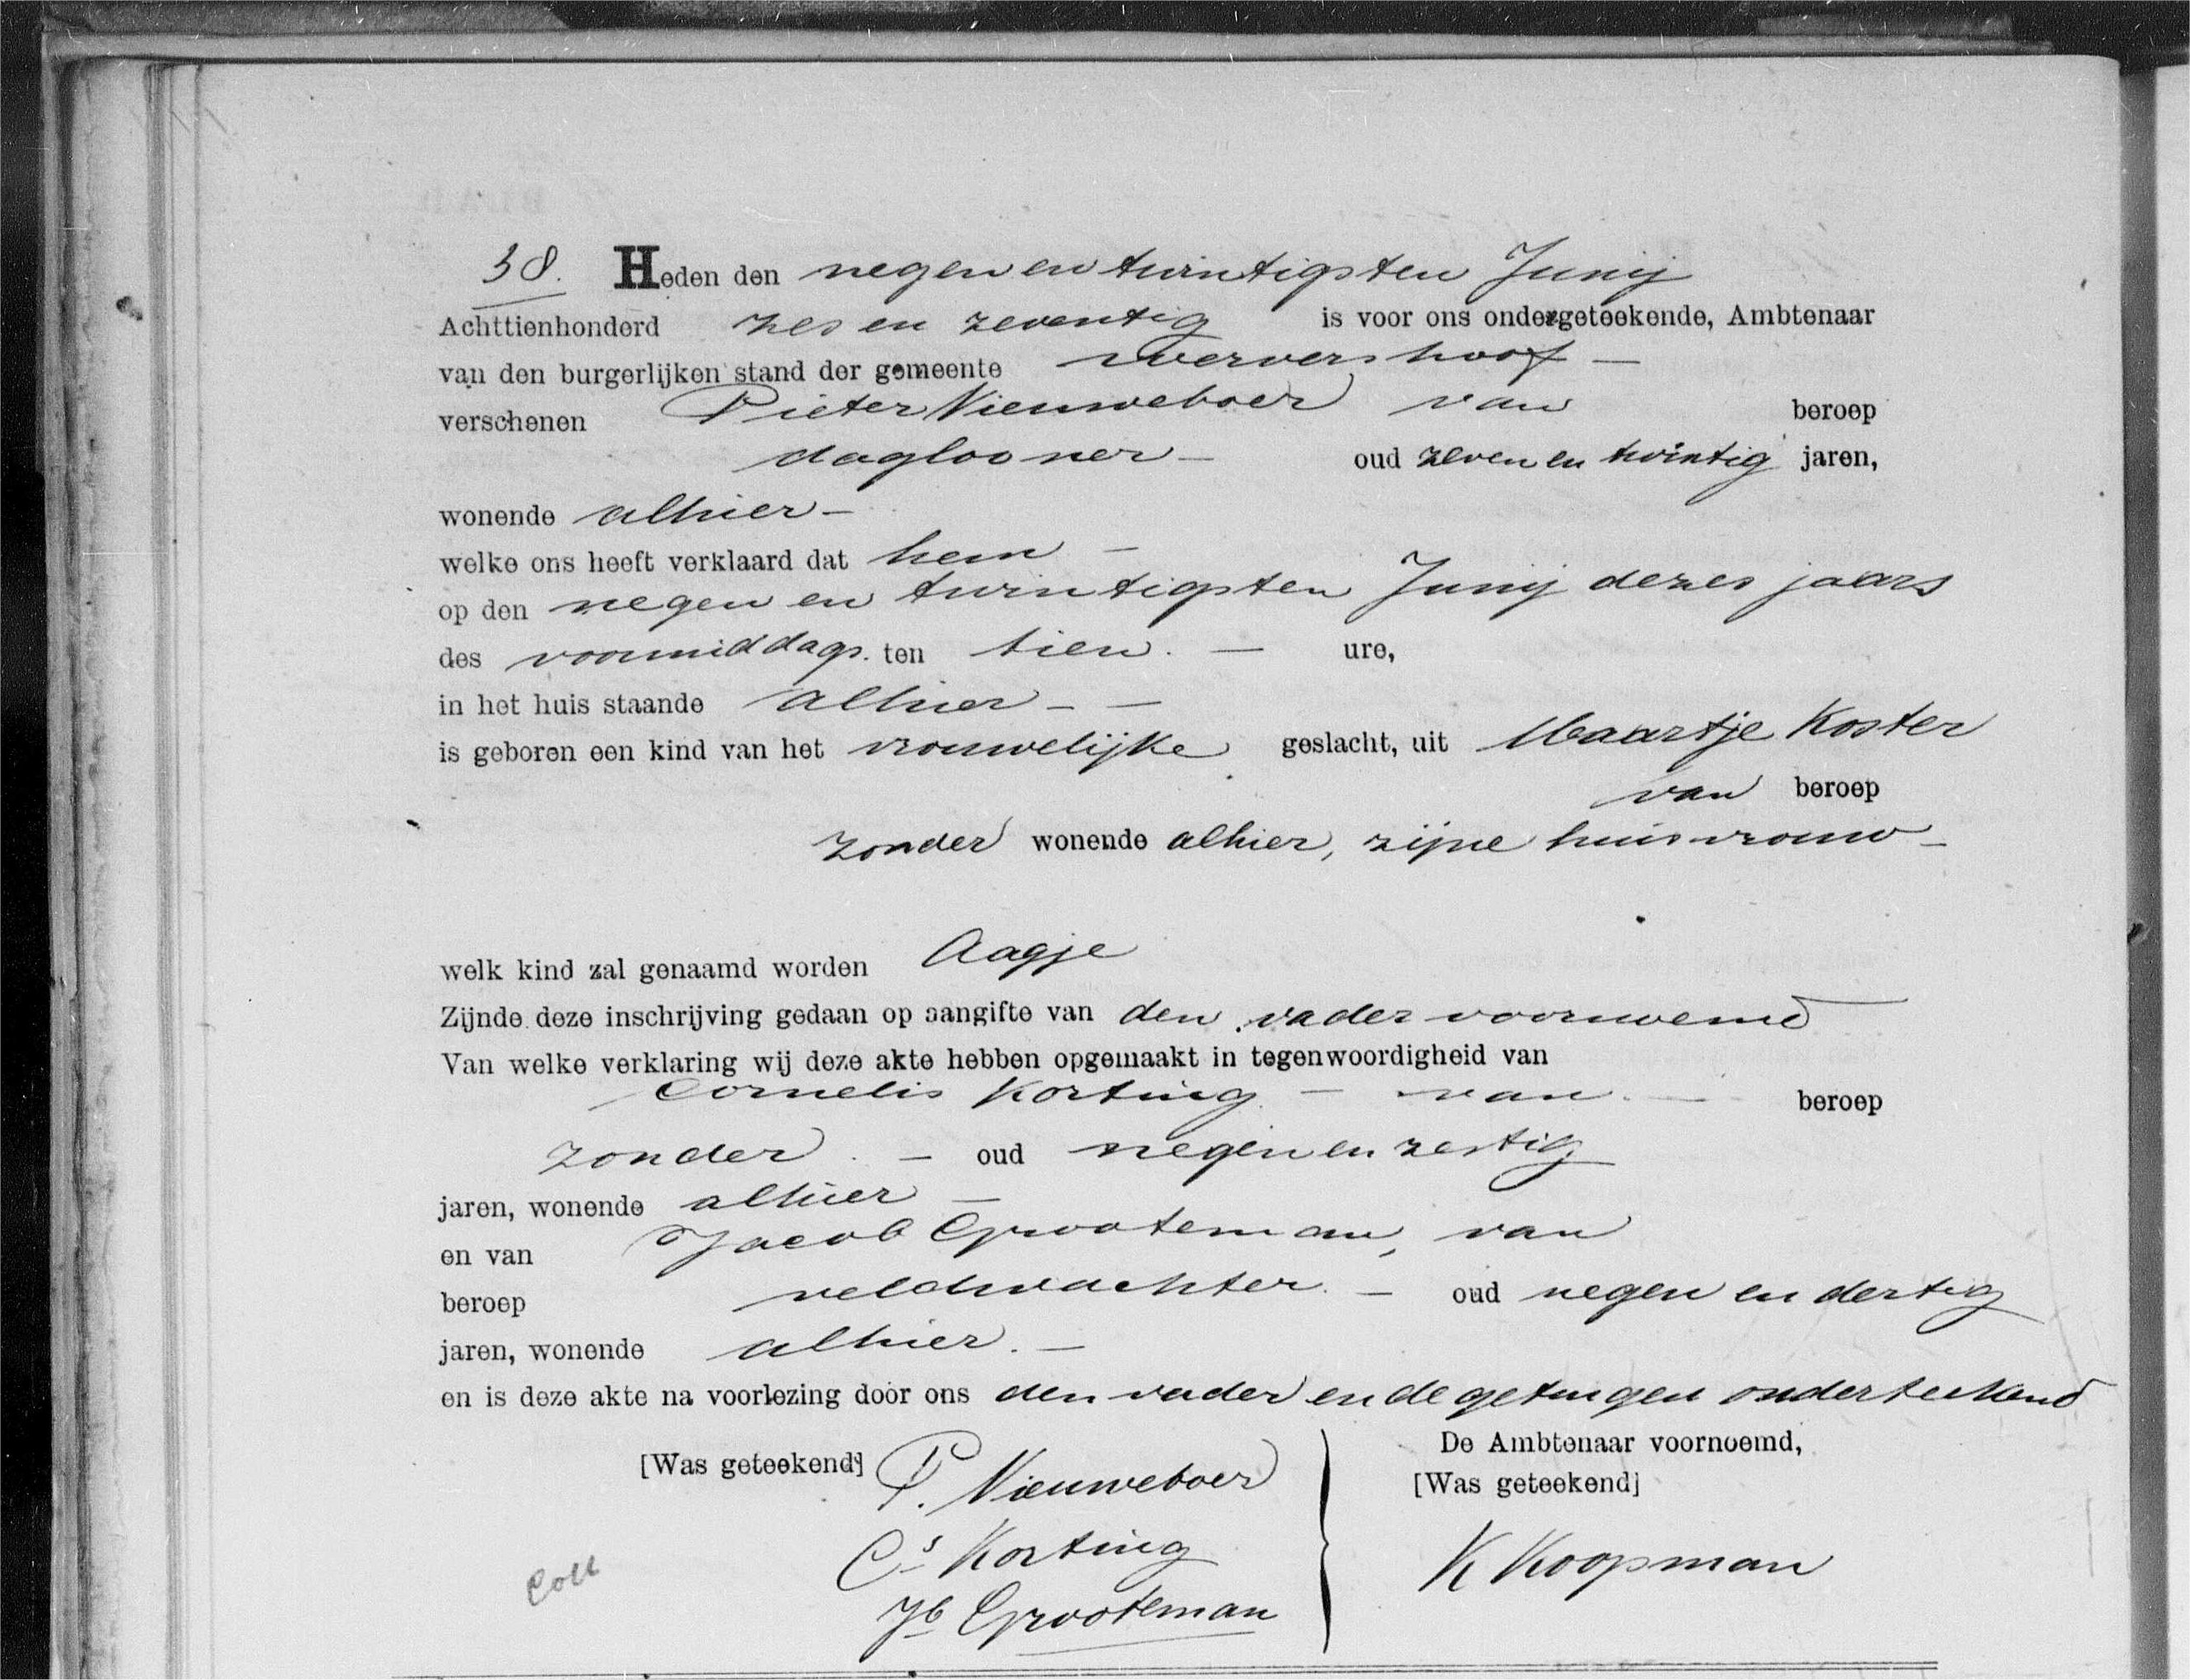 38. Heden den negen en twintigsten Junij
Achttienhonderd zes en zeventig is voor ons ondergeteekende, Ambtenaar
van den burgerlijken stand der gemeente Wervershoof —
verschenen Pieter Nieuweboer van beroep
daglooner — oud zeven en twintig jaren,
wonende alhier —
welke ons heeft verklaard dat hem —
op den negen en twintigsten Junij dezes jaars
des voormiddags ten tien. — ure,
in het huis staande alhier — —
is geboren een kind van het vrouwelijke geslacht, uit Maartje Koster
van beroep
zonder wonende alhier, zijne huisvrouw —
welk kind zal genaamd worden Aagje
Zijnde deze inschrijving gedaan op aangifte van den vader voornoemd
Van welke verklaring wij deze akte hebben opgemaakt in tegenwoordigheid van
Cornelis Korting — van — beroep
zonder. — oud negen en zestig
jaren, wonende alhier —
en van Jacob Grooteman, van
beroep veldwachter. — oud negen en dertig
jaren, wonende alhier. —
en is deze akte na voorlezing door ons den vader en de getuigen onderteekend
[Was geteekend] P. Nieuweboer
De Ambtenaar voornoemd,
[Was geteekend]
Cs Korting
K Koopman
Jb Grooteman
Coll